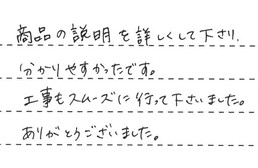 商品の説明を詳しくして下さり、
分かりやすかったです。
工事もスムーズに行って下さいました。
ありがとうございました。